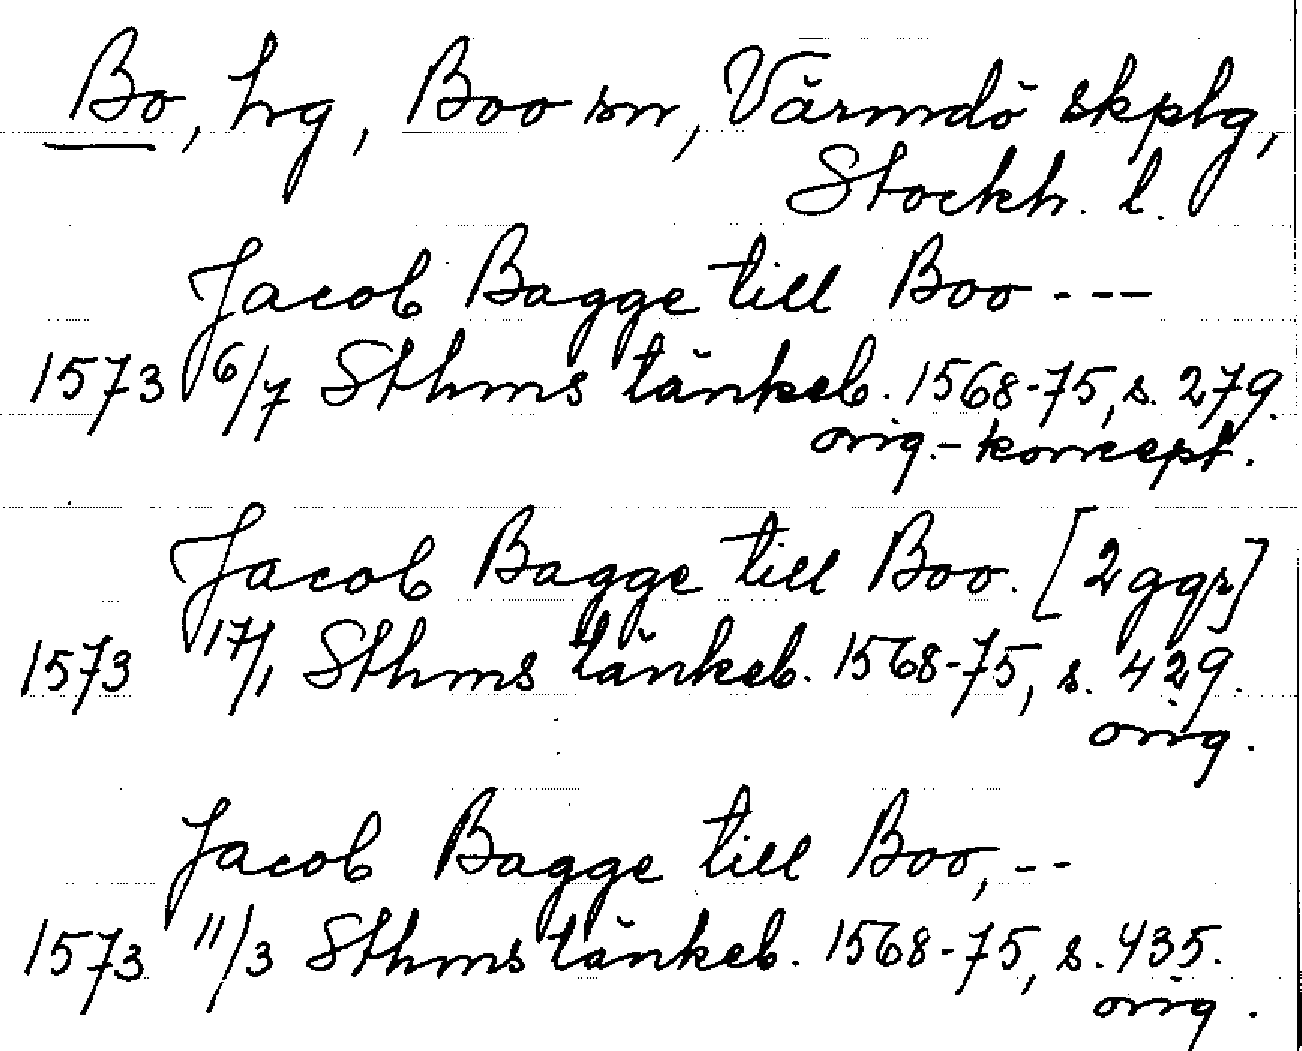 Bo, hg, Boo sn, Värmdö skplg,
Stockh. l.
Jacob Bagge till Boo ---
1573 6/7 Sthms tänkeb. 1568-75, s. 279.
orig.-koncept.
Jacob Bagge till Boo. [2 ggr]
1573 17/1 Sthms tänkeb. 1568-75, s. 429.
orig.
Jacob Bagge till Boo, --
1573 11/3 Sthms tänkeb. 1568-75, s. 435.
orig.